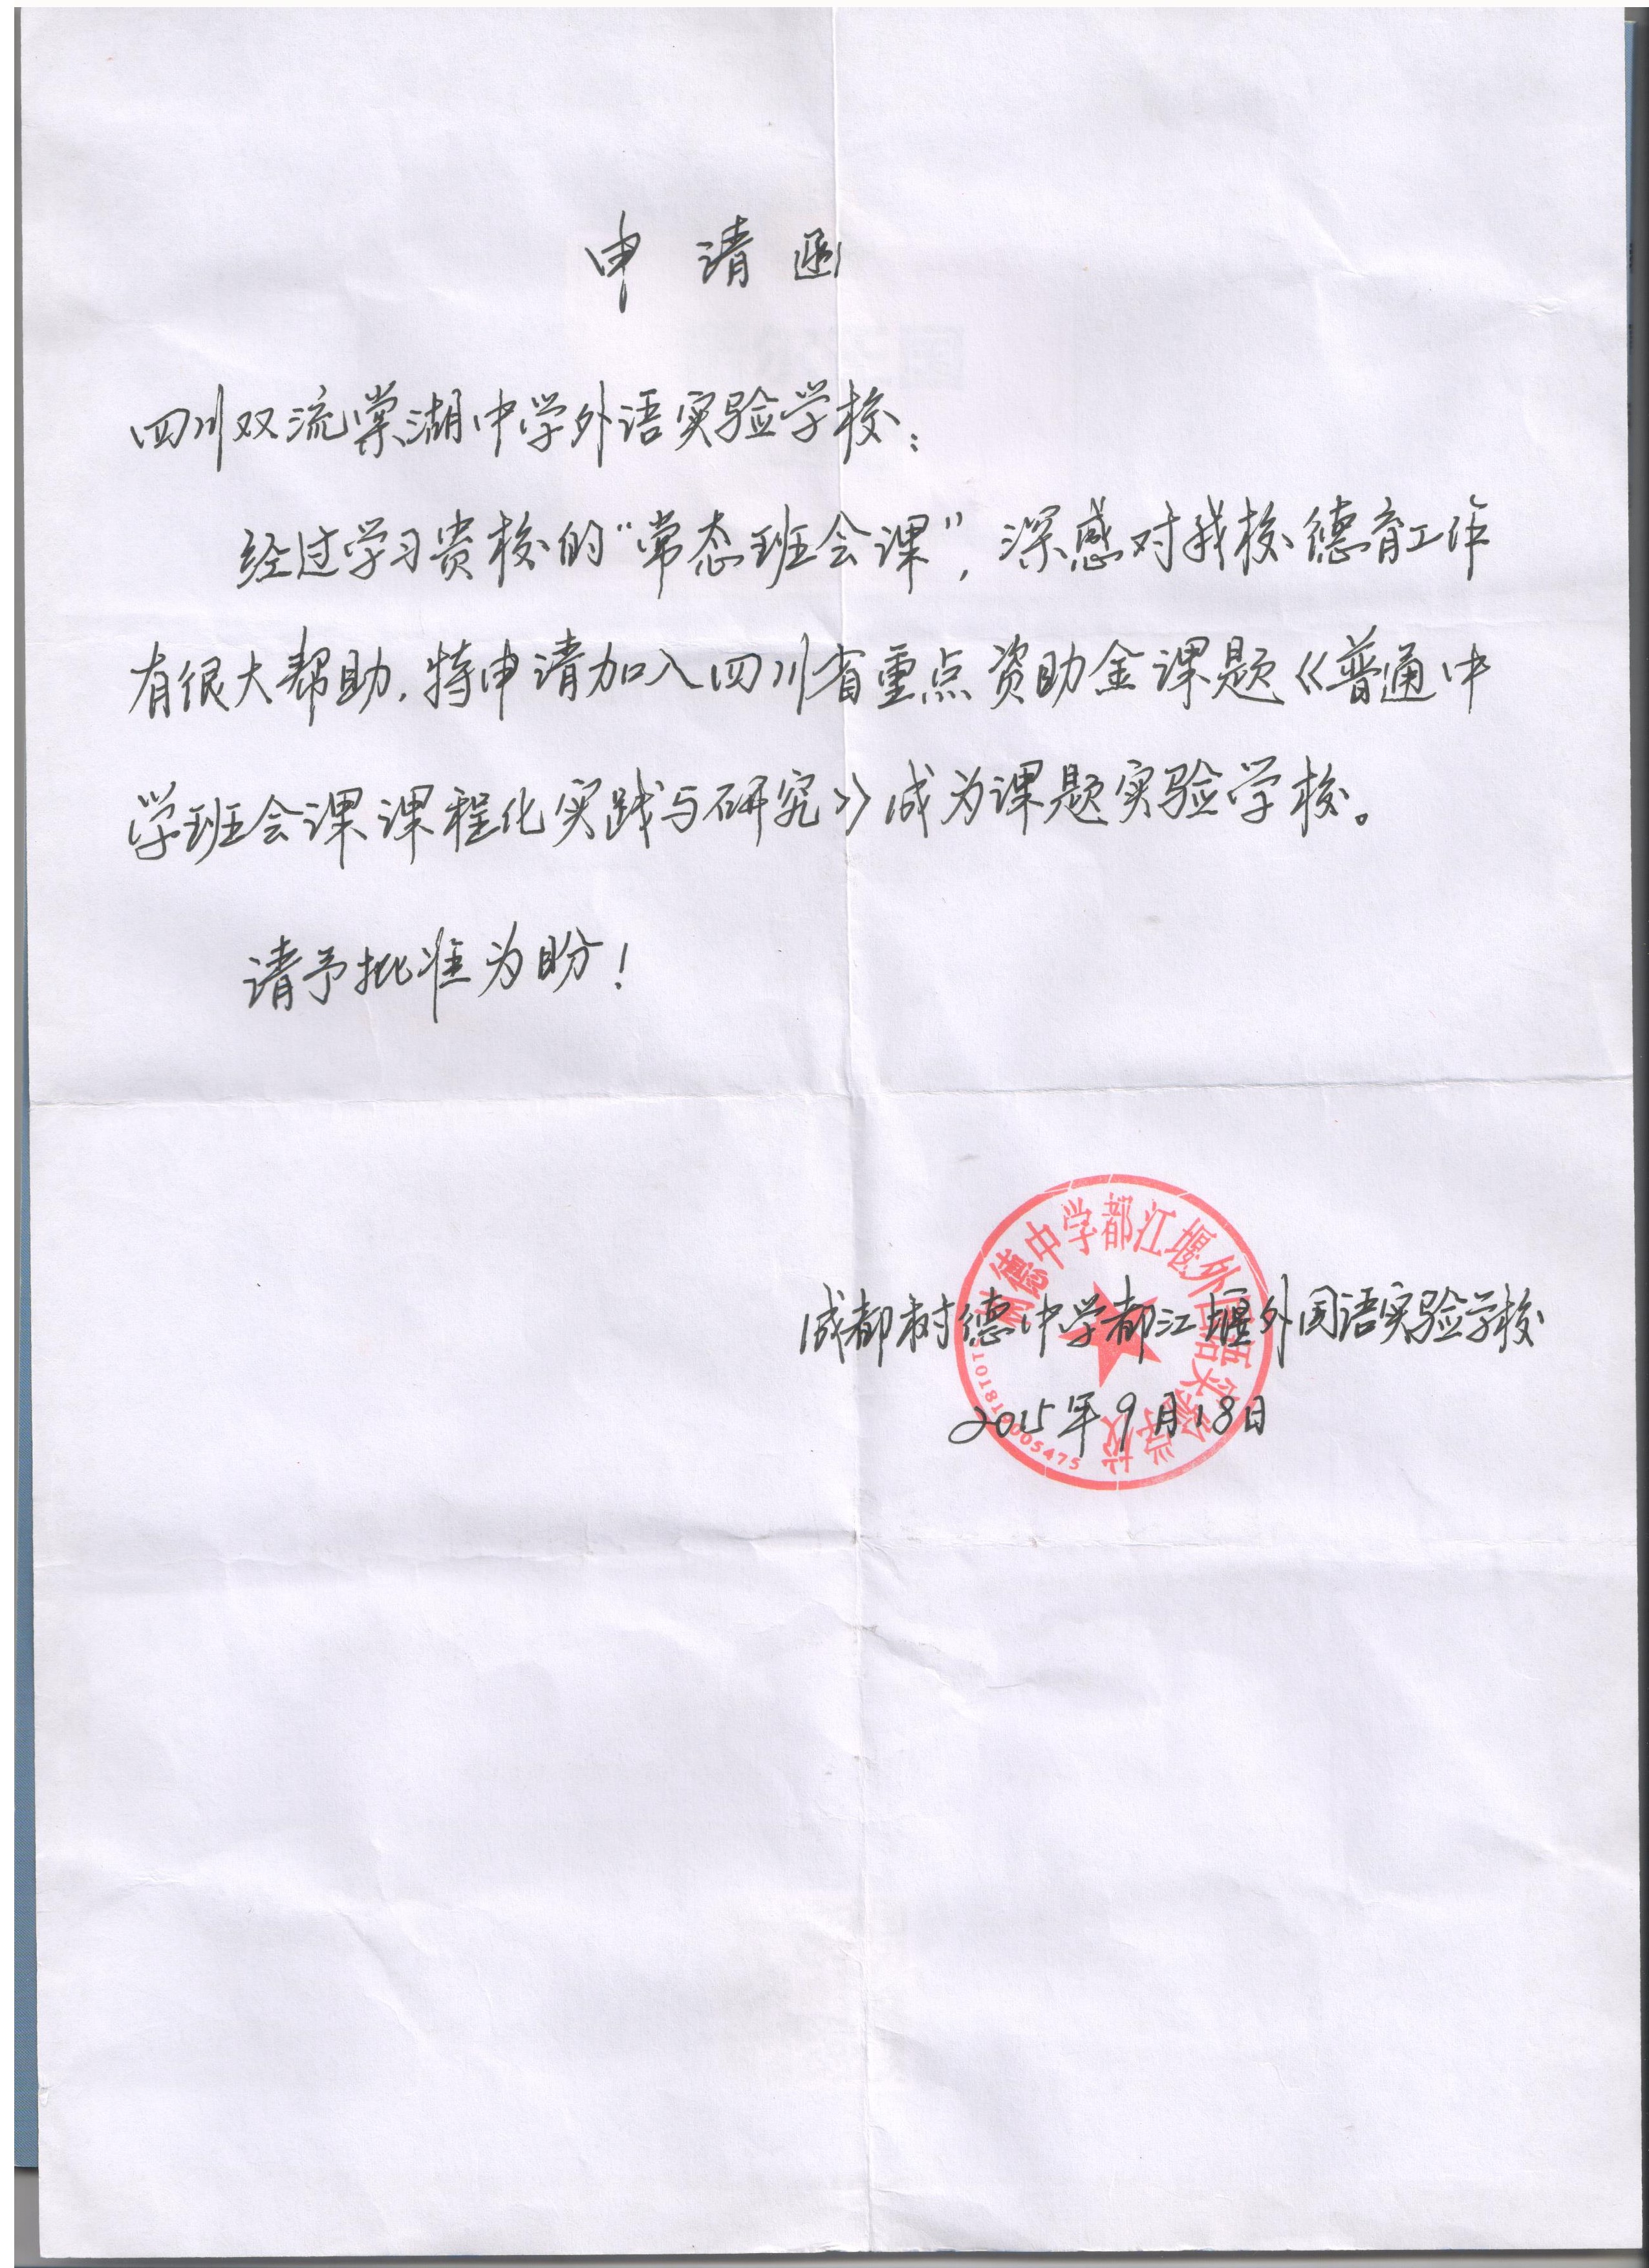 申请函
四川双流棠湖中学外语实验学校：
经过学习贵校的“常态班会课”，深感对我校德育工作
有很大帮助，特申请加入四川省重点资助金课题《普通中
学班会课课程化实践与研究》成为课题实验学校。
请予批准为盼！
成都树德中学都江堰外国语实验学校
2015年9月18日
树德中学都江堰外国语实验学校